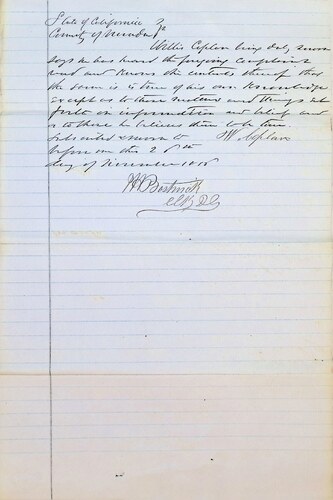 State of California
County of Nevada } ss
Willis Coplan being duly sworn
says he has heard the foregoing Complaint
read and knows the contents thereof that
the same is true of his own knowledge
except as to those matters and things set
forth on information and belief and
as to those he believes them to be true
Subscribed & sworn to W. Coplan
before me this 26th
day of November
Clk D C